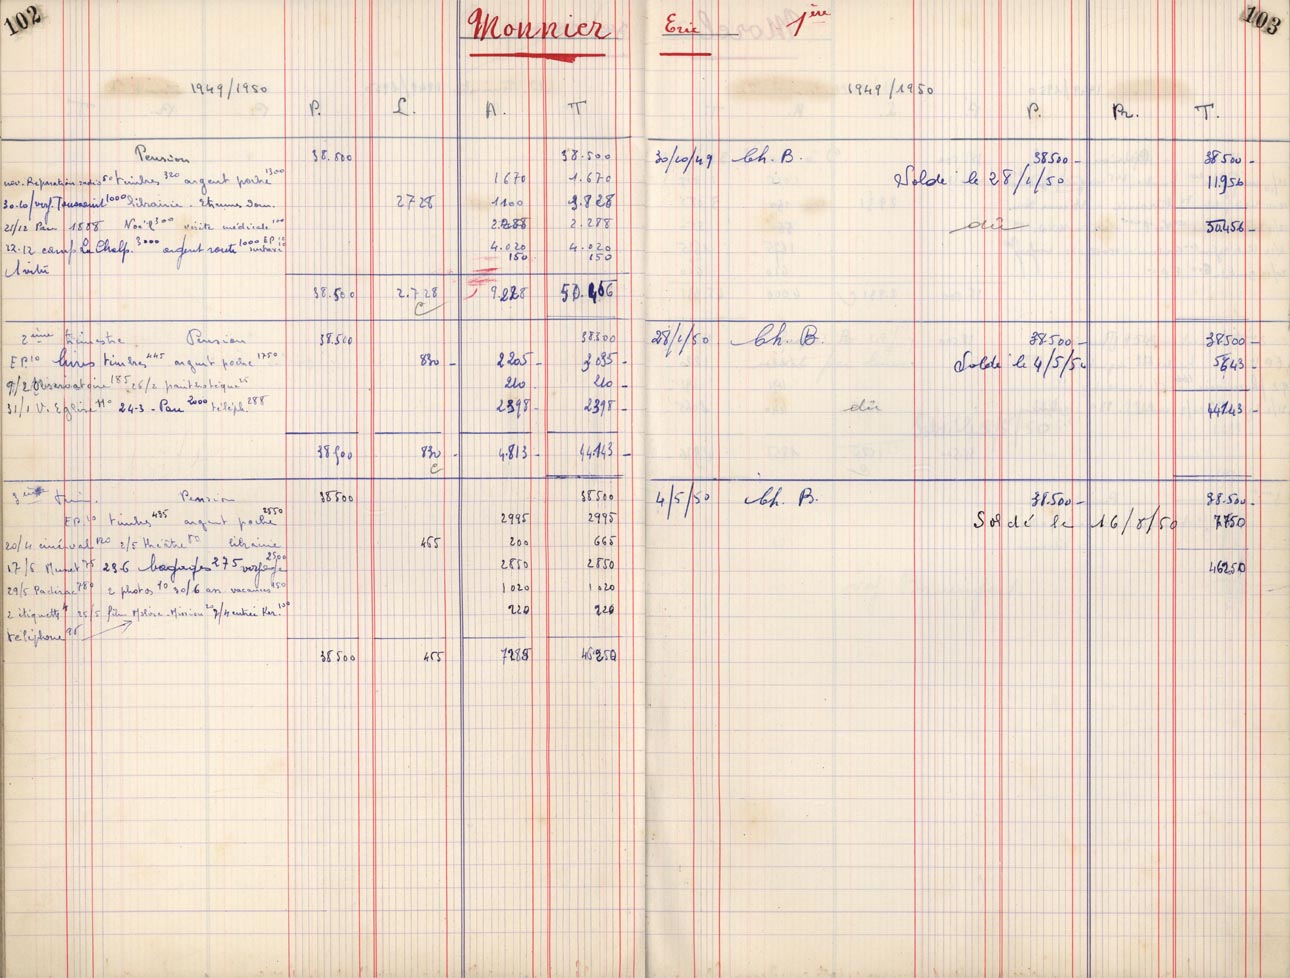 102
Monnier
Eric 1ère
103
1949/1950
P. L. A. T
Pension 38.500 38.500
nov. Réparation radio 50 timbres 320 argent poche 1300 1670 1.670
30.10/ voy. Toussaint 1000 librairie. Etienne 2728 1100 3.828
21/12 Pau 1888 Noël 300 visite médicale 100 2.288 2.288
22.12 camp La Chalp. 3000 argent route 1000 EP 10 4.020 4.020
150 150
38.500 2.728 9.228 50.456
2ème trimestre Pension 38500 38500
EP. 10 livres timbres 445 argent poche 1750 830 - 2205 - 3035 -
9/2 Observatoire 185 26/2 panthotique 25 210 210 -
31/1 V. Eglise 110 24-3 - Pau 2000 téléph. 288 2398 - 2398 -
38500 830 - 4.813 - 44.143 -
3ème trim. Pension 38500 38500
EP. 10 timbres 435 argent poche 2550 2995 2995
20/4 ciné val 120 2/5 théâtre 80 librairie 455 200 665
17/5 Musset 75 236 bagages 275 voyage 2500 2850 2850
29/5 Padirac 780 2 photos 90 30/6 arr. vacances 150 1020 1020
2 étiquettes 4 25/5 film Molière Mission 20 9/4 entrée Ker. 100 220 220
téléphone 96
38500 455 7285 46250
1949/1950
P. Pr. T.
30/10/49 Ch. B. 38500 - 38500 -
Soldé le 28/1/50 11.956
dû 50456 -
28/1/50 Ch. B. 38500 - 38500 -
Soldé le 4/5/50 5643 -
dû 44143 -
4/5/50 Ch. B. 38.500 - 38.500 -
Soldé le 16/8/50 7750
46250